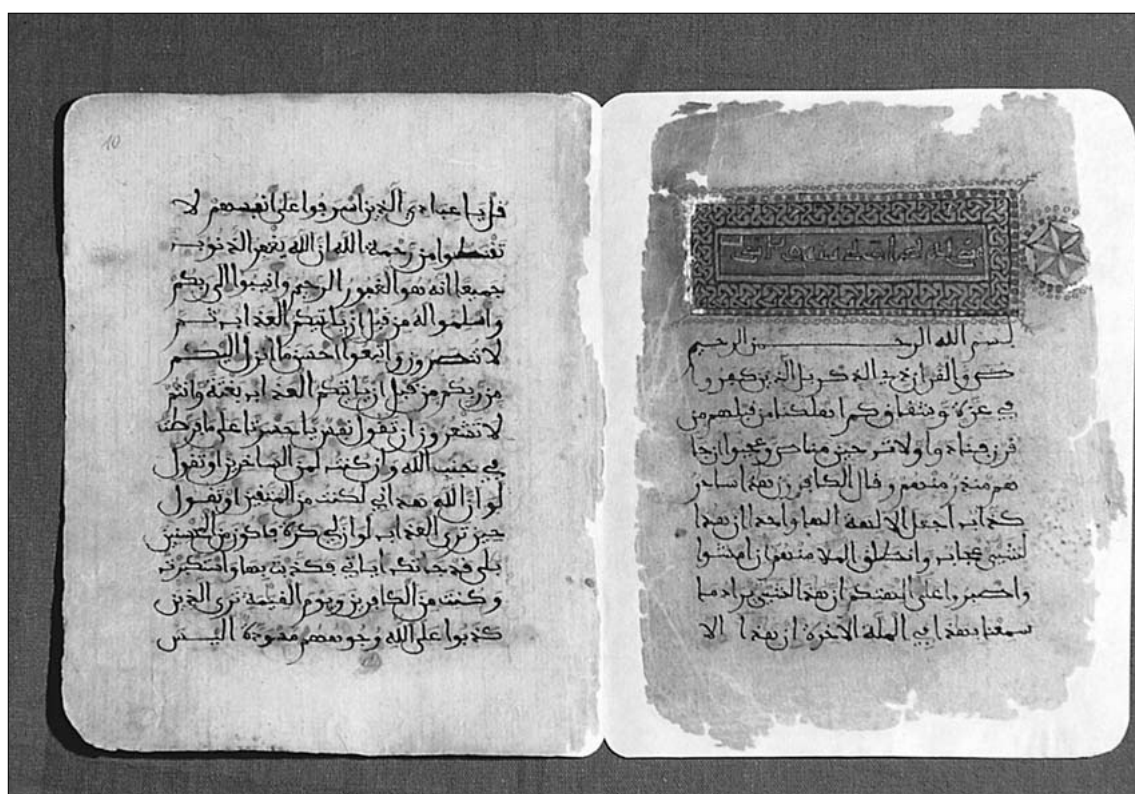 بسم الله الرحمن الرحيم
ص والقران ذي الذكر بل الذين كفروا
في عزة وشقاق كم اهلكنا من قبلهم من
قرن فنادوا ولات حين مناص وعجبوا ان جا
هم منذر منهم وقال الكافرون هذا ساحر
كذاب اجعل الالهة الها واحدا ان هذا
لشيء عجاب وانطلق الملا منهم ان امشوا
واصبروا على الهتكم ان هذا لشيء يراد ما
سمعنا بهذا في الملة الاخرة ان هذا الا
10
قل يا عبادي الذين اسرفوا على انفسهم لا
تقنطوا من رحمة الله ان الله يغفر الذنوب
جميعا انه هو الغفور الرحيم وانيبوا الى ربكم
واسلموا له من قبل ان ياتيكم العذاب ثم
لا تنصرون واتبعوا احسن ما انزل اليكم
من ربكم من قبل ان ياتيكم العذاب بغتة وانتم
لا تشعرون ان تقول نفس يا حسرتا على ما فرطت
في جنب الله وان كنت لمن الساخرين او تقول
لو ان الله هداني لكنت من المتقين او تقول
حين ترى العذاب لو ان لي كرة فاكون من المحسنين
بلى قد جاتك اياتي فكذبت بها واستكبرت
وكنت من الكافرين ويوم القيمة ترى الذين
كذبوا على الله وجوههم مسودة اليس